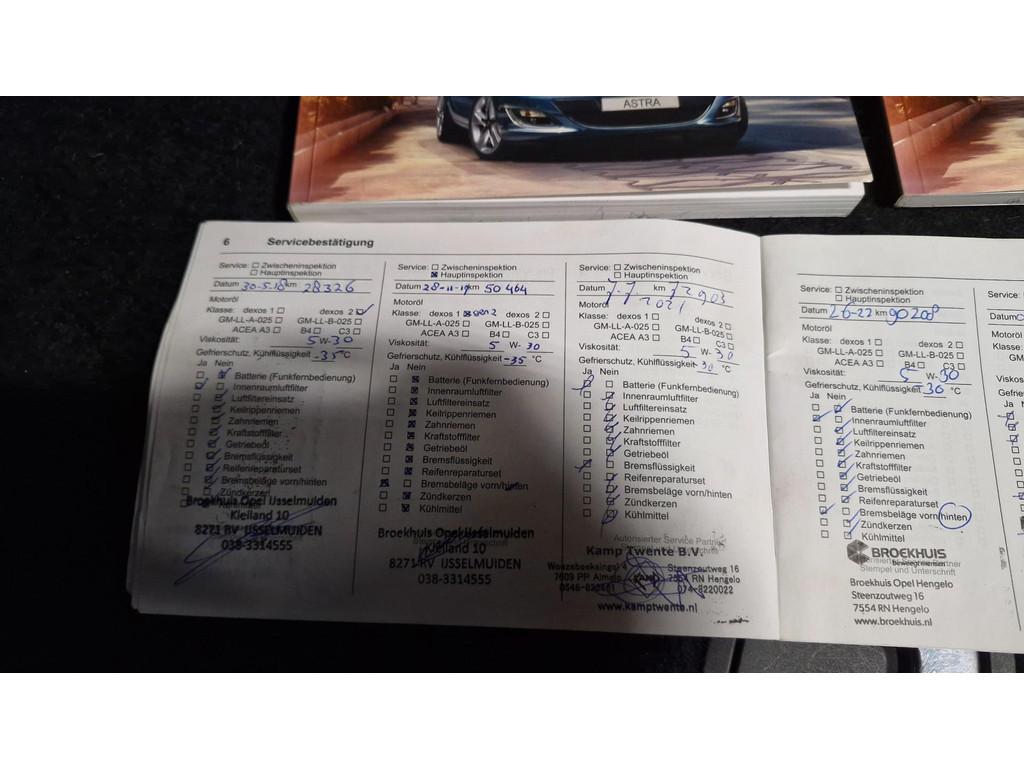 ASTRA
6 Servicebestätigung
Service: Zwischeninspektion
Hauptinspektion
Datum 30-5-18 km 28326
Motoröl
Klasse: dexos 1 dexos 2
GM-LL-A-025 GM-LL-B-025
ACEA A3 B4 C3
Viskosität: 5 W-30
Gefrierschutz, Kühlflüssigkeit -35 °C
Ja Nein
Batterie (Funkfernbedienung)
Innenraumluftfilter
Luftfiltereinsatz
Keilrippenriemen
Zahnriemen
Kraftstofffilter
Getriebeöl
Bremsflüssigkeit
Reifenreparaturset
Bremsbeläge vorn/hinten
Zündkerzen
Broekhuis Opel IJsselmuiden
Kleiland 10
8271 RV IJSSELMUIDEN
038-3314555
Service: Zwischeninspektion
Hauptinspektion
Datum 28-11-19 km 50464
Motoröl
Klasse: dexos 1 dexos 2
GM-LL-A-025 GM-LL-B-025
ACEA A3 B4 C3
Viskosität: 5 W-30
Gefrierschutz, Kühlflüssigkeit -35 °C
Ja Nein
Batterie (Funkfernbedienung)
Innenraumluftfilter
Luftfiltereinsatz
Keilrippenriemen
Zahnriemen
Kraftstofffilter
Getriebeöl
Bremsflüssigkeit
Reifenreparaturset
Bremsbeläge vorn/hinten
Zündkerzen
Kühlmittel
Broekhuis Opel IJsselmuiden
Kleiland 10
8271 RV IJSSELMUIDEN
038-3314555
Service: Zwischeninspektion
Hauptinspektion
Datum 7-7 km 72903
Motoröl 2021
Klasse: dexos 1 dexos 2
GM-LL-A-025 GM-LL-B-025
ACEA A3 B4 C3
Viskosität: 5 W-30
Gefrierschutz, Kühlflüssigkeit -30 °C
Ja Nein
Batterie (Funkfernbedienung)
Innenraumluftfilter
Luftfiltereinsatz
Keilrippenriemen
Zahnriemen
Kraftstofffilter
Getriebeöl
Bremsflüssigkeit
Reifenreparaturset
Bremsbeläge vorn/hinten
Zündkerzen
Kühlmittel
Autorisierter Service Partner
Kamp Twente B.V.
Steenzoutweg 16
7609 PP Almelo 7554 RN Hengelo
074-8220022
www.kamptwente.nl
Service: Zwischeninspektion
Hauptinspektion
Datum 2-6-22 km 90208
Motoröl
Klasse: dexos 1 dexos 2
GM-LL-A-025 GM-LL-B-025
ACEA A3 B4 C3
Viskosität: 5 W-30
Gefrierschutz, Kühlflüssigkeit -30 °C
Ja Nein
Batterie (Funkfernbedienung)
Innenraumluftfilter
Luftfiltereinsatz
Keilrippenriemen
Zahnriemen
Kraftstofffilter
Getriebeöl
Bremsflüssigkeit
Reifenreparaturset
Bremsbeläge vorn/hinten
Zündkerzen
Kühlmittel
BROEKHUIS
Stempel und Unterschrift
Broekhuis Opel Hengelo
Steenzoutweg 16
7554 RN Hengelo
www.broekhuis.nl
Service:
Datum
Motoröl
Klasse:
Viskosität:
Ja